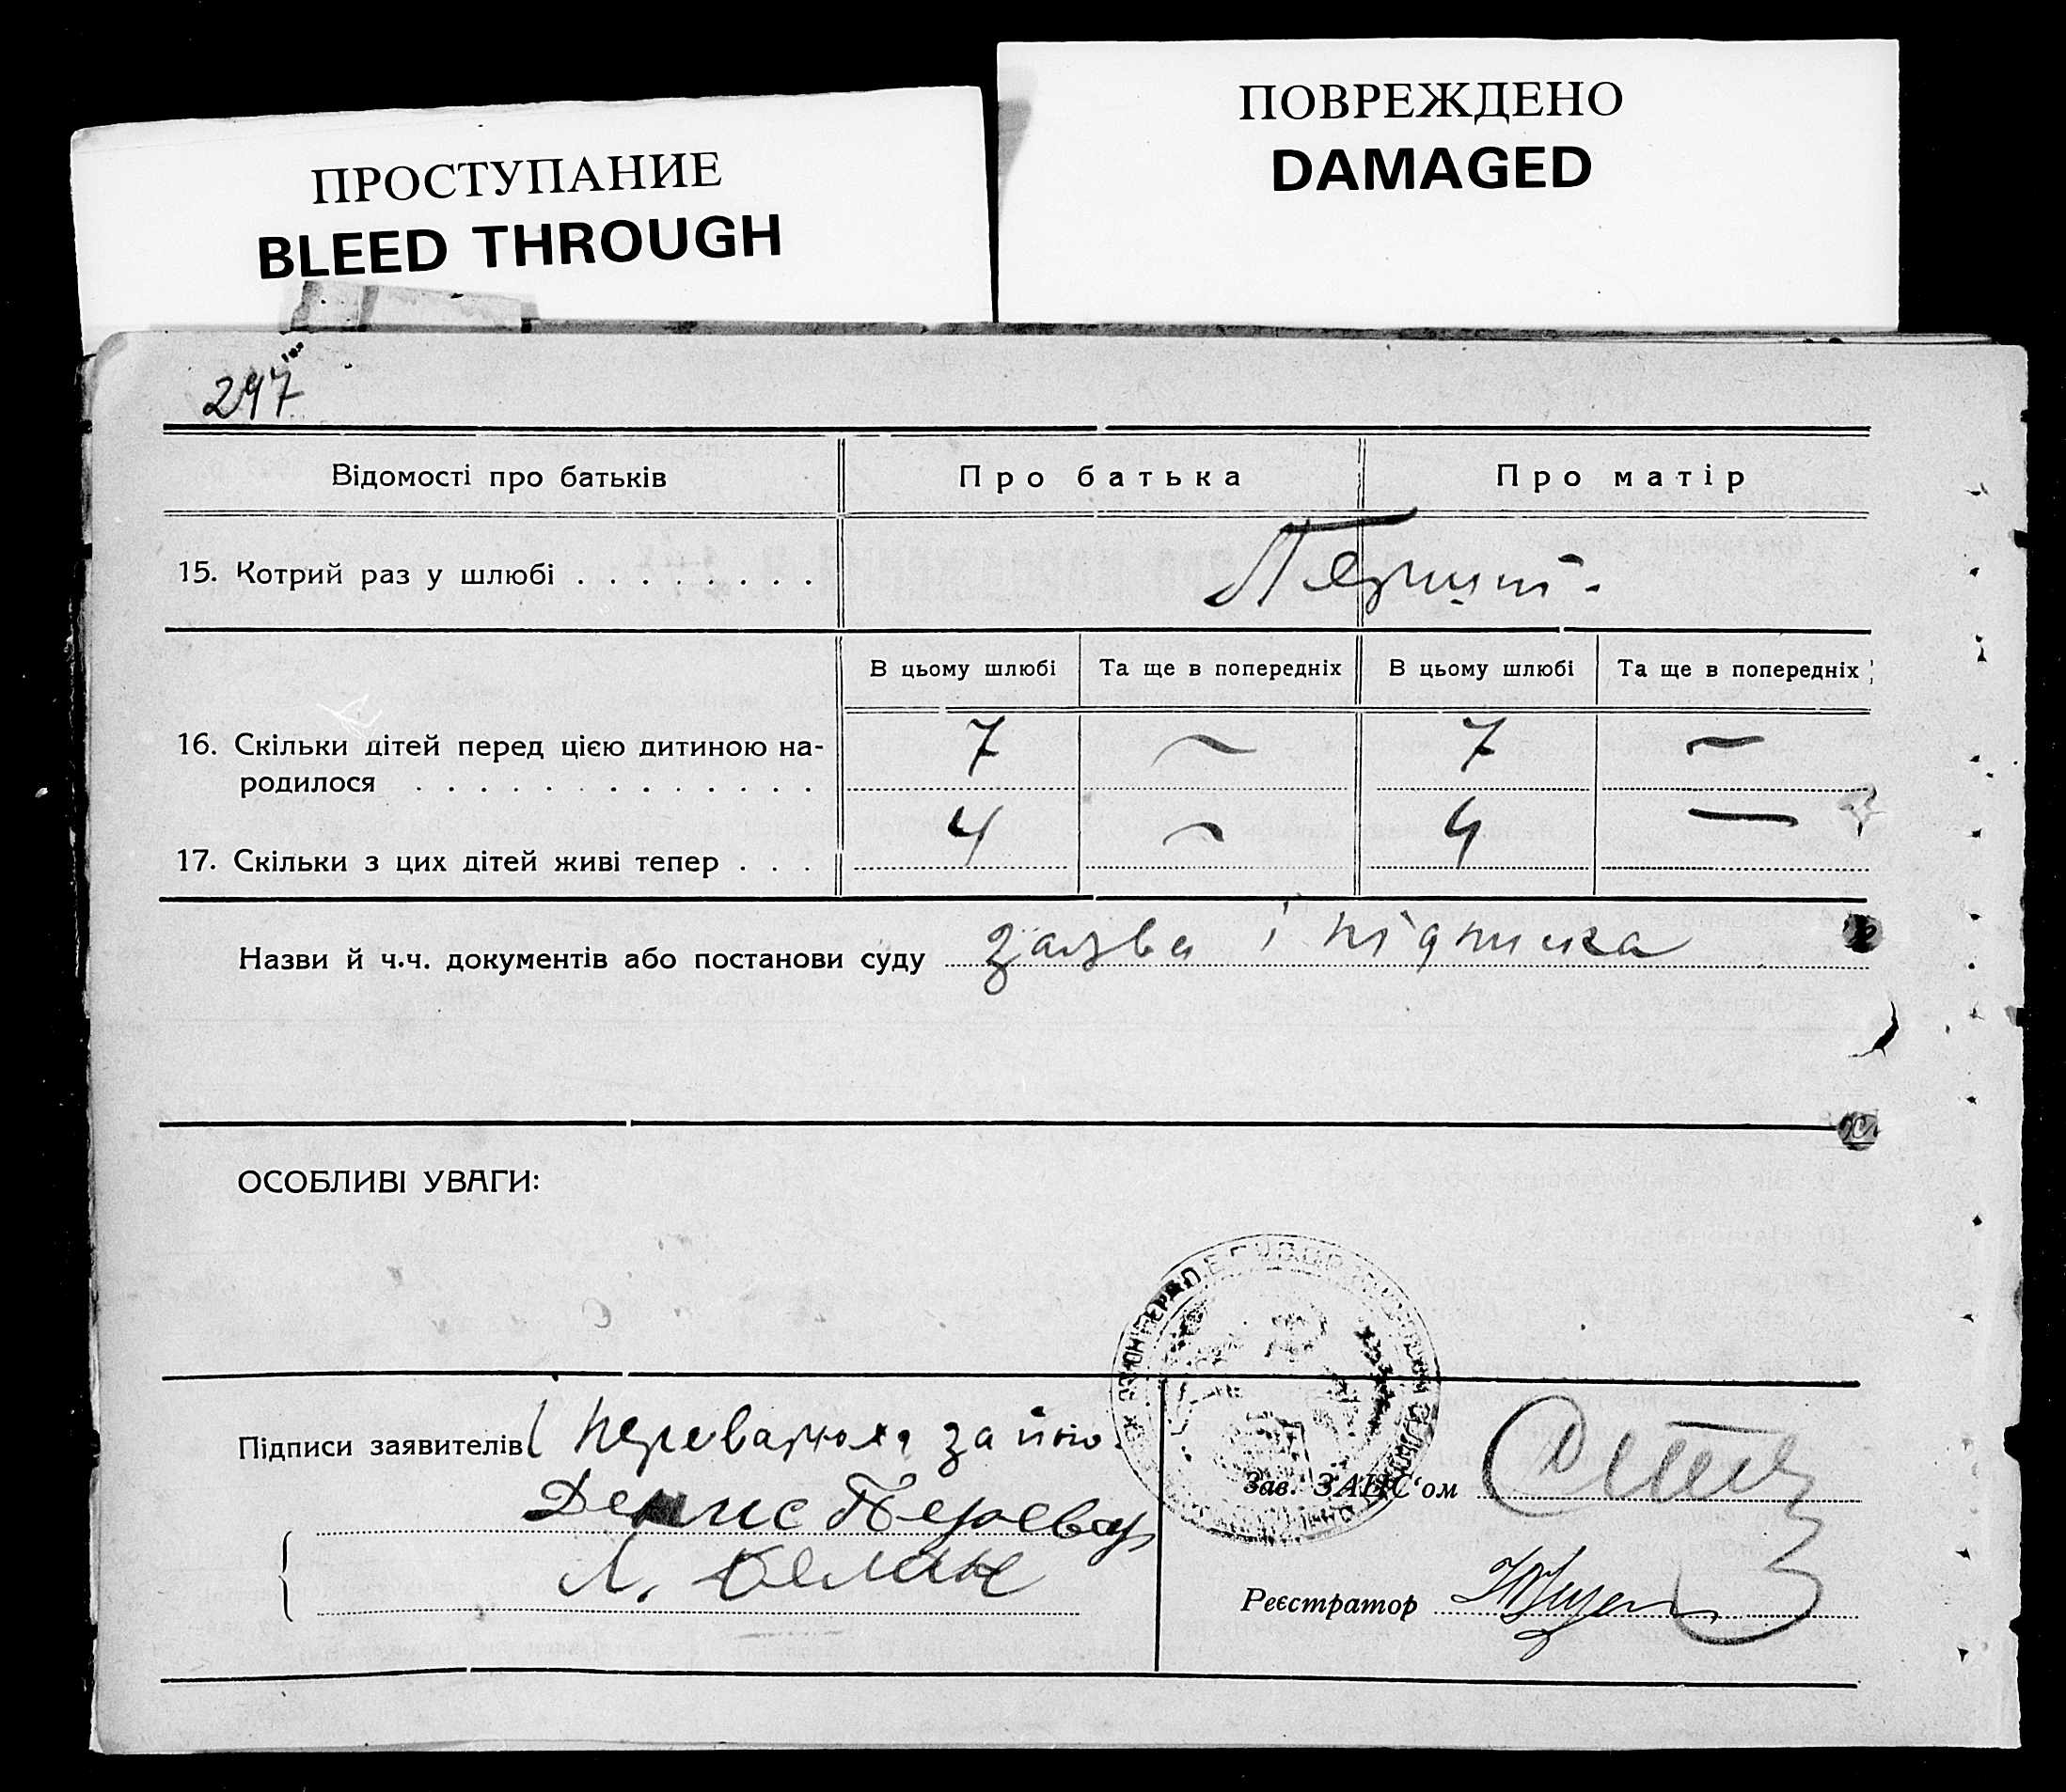 ПРОСТУПАНИЕ
BLEED THROUGH
ПОВРЕЖДЕНО
DAMAGED
297
Відомості про батьків
Про батька
Про матір
15. Котрий раз у шлюбі . . . . . . . .
Перший.
В цьому шлюбі
Та ще в попередніх
В цьому шлюбі
Та ще в попередніх
16. Скільки дітей перед цією дитиною на-
7 ~ 7 —
родилося . . . . . . . . . . . . . .
17. Скільки з цих дітей живі тепер . . .
4 ~ 4 —
Назви й ч.ч. документів або постанови суду заява і підписка
ОСОБЛИВІ УВАГИ:
Підписи заявителів
Денис Перевар
Л.
Зав. ЗАНС'ом
Реєстратор